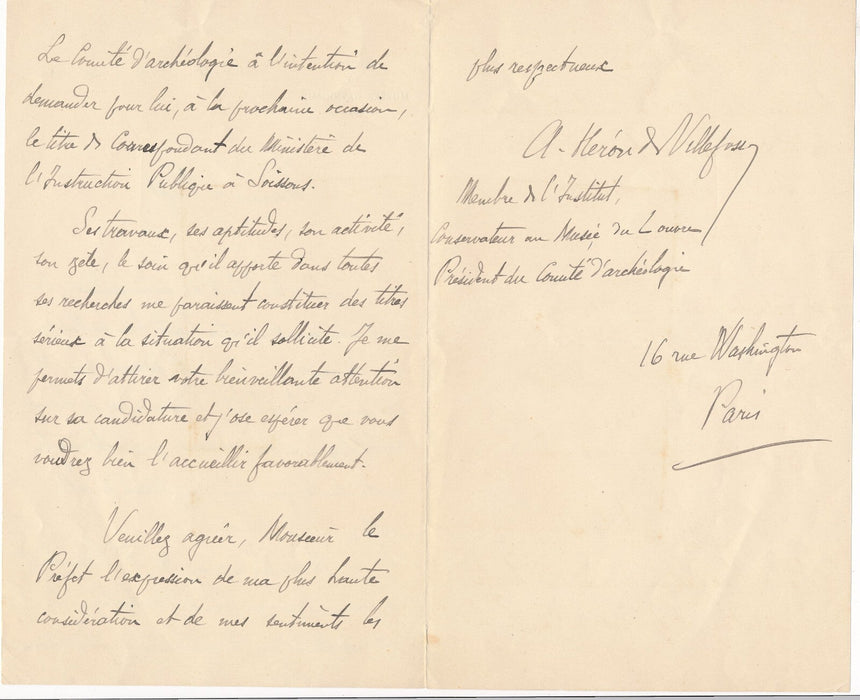 Le Comité d'archéologie à l'intention de
demander pour lui, à la prochaine occasion,
le titre de Correspondant du Ministère de
l'Instruction Publique à Soissons.
Ses travaux, ses aptitudes, son activité,
son zèle, le soin qu'il apporte dans toutes
ses recherches me paraissent constituer des titres
sérieux à la situation qu'il sollicite. Je me
permets d'attirer votre bienveillante attention
sur sa candidature et j'ose espérer que vous
voudrez bien l'accueillir favorablement.
Veuillez agréer, Monsieur le
Préfet l'expression de ma plus haute
considération et de mes sentiments les
plus respectueux
A. Héron de Villefosse
Membre de l'Institut,
Conservateur au Musée du Louvre
Président du Comité d'archéologie
16 rue Washington
Paris